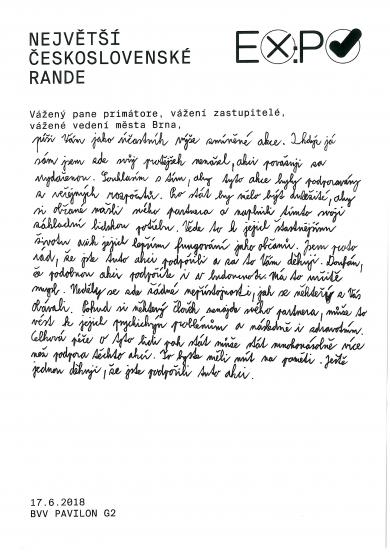 NEJVĚTŠÍ
ČESKOSLOVENSKÉ
RANDE
EXPO
Vážený pane primátore, vážení zastupitelé,
vážené vedení města Brna,
píši Vám jako účastník výše zmíněné akce. I když já
sám jsem zde svůj protějšek nenašel, akci považuji za
vydařenou. Souhlasím s tím, aby tyto akce byly podporovány
z veřejných rozpočtů. Pro stát by mělo být důležité, aby
si občané našli svého partnera a naplnili tímto svoji
základní lidskou potřebu. Vede to k jejich šťastnějším
životům a k jejich lepšímu fungování jako občanů. Jsem proto
rád, že jste tuto akci podpořili a za to Vám děkuji. Doufám,
že podobnou akci podpoříte i v budoucnosti. Má to určitě
smysl. Neděly se zde žádné nepřístojnosti, jak se někteří z Vás
obávali. Pokud si některý člověk nenajde svého partnera, může to
vést k jejich psychickým problémům a následně i zdravotním.
Celková péče o tyto lidi pak stát může stát mnohonásobně více
než podpora těchto akcí. To byste měli mít na paměti. Ještě
jednou děkuji, že jste podpořili tuto akci.
17.6.2018
BVV PAVILON G2